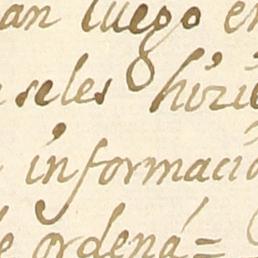 an luego en
seles hizie
informació
de ordená=